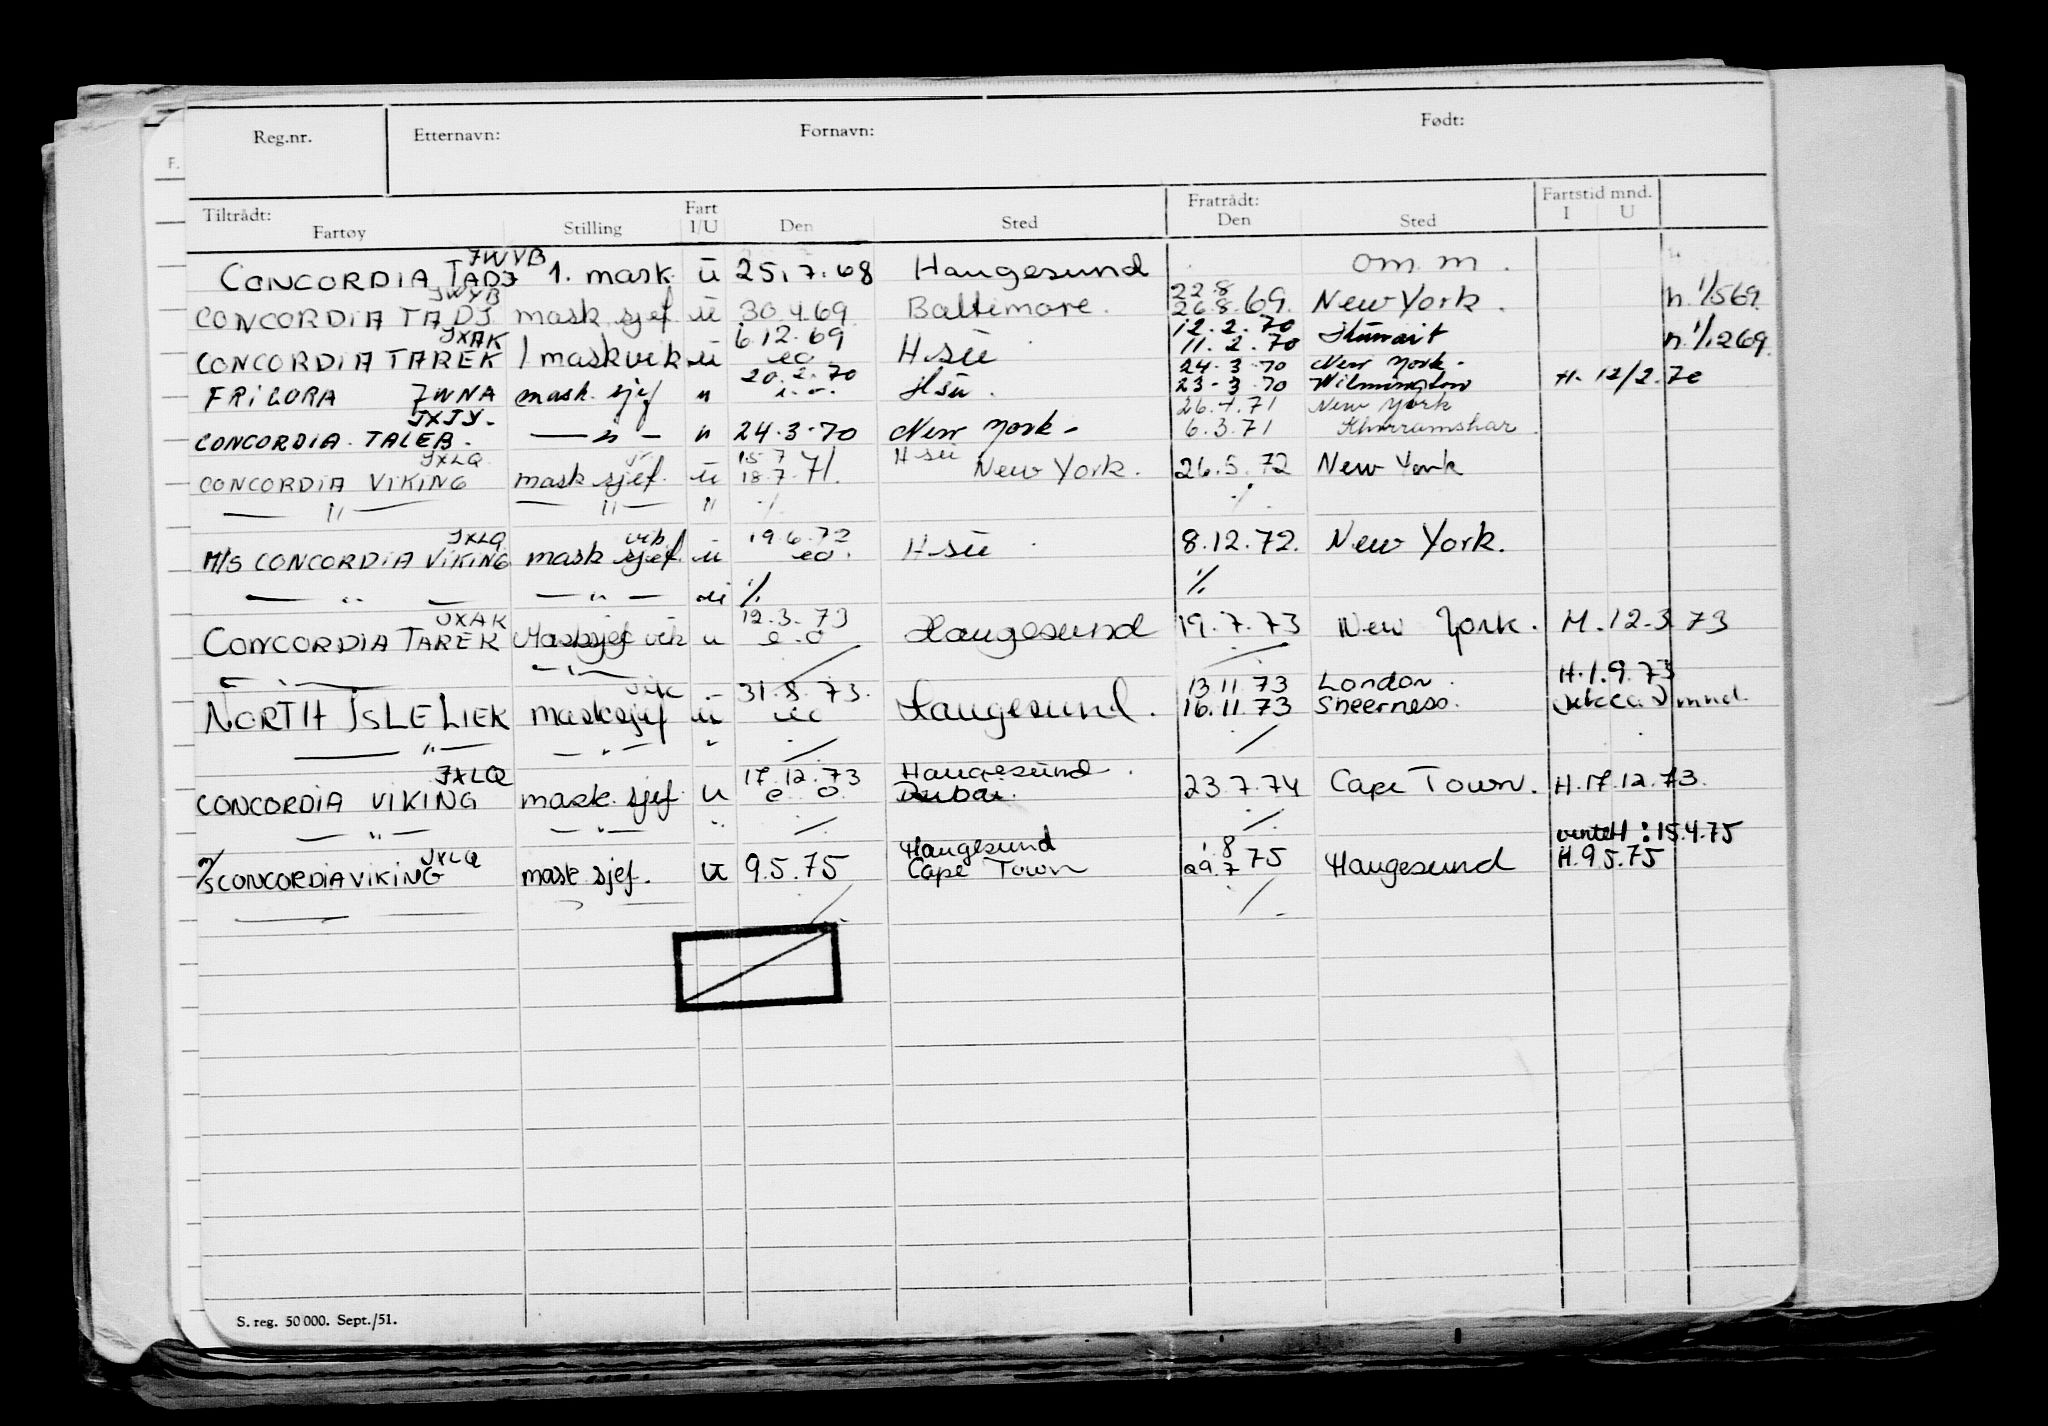 Reg.nr. Etternavn: Fornavn: Født:
F.
Tiltrådt: Fartøy Stilling Fart I/U Den Sted Fratrådt: Den Sted Fartstid mnd. I U
JWVB
CONCORDIA TADJ 1. mask. ü 25.7.68 Haugesund om.m.
JWYB 22.8
CONCORDIA TADJ mask sjef ü 30.4.69 Baltimore. 26.8.69. New York. h. 1/569
JXAK 6.12.69 12.2.70 Kuwait
CONCORDIA TAREK 1 maskvik ü eo Hsü 11.2.70 h. 1/1269.
20.2.70 24.3.70 New York.
FRIGORA JWNA mask. sjef u e.o. Hsü. 23-3.70 Wilmington H. 12/2.70
JXJY. 26.4.71 New York
CONCORDIA. TALEB. — " — u 24.3.70 New York. 6.3.71 Khorramshar.
JXLQ 15.7 Hsü
CONCORDIA VIKING mask sjef. ü 18.7.71. New York. 26.5.72 New York
— " — — " — " ./. ./.
JXLQ vik 19.6.72
M/S CONCORDIA VIKING mask sjef. ü eo. Hsü 8.12.72. New York.
— " — — " — ./. ./.
JXAK 12.3.73
CONCORDIA TAREK Masksjef vik u e.o Haugesund 19.7.73 New York. M.12.3.73
— " — — " —
vik 31.8.73. 13.11.73 London. H.1.9.73
NORTH ISLELIEK masksjef ü eo Haugesund. 16.11.73 Sheerness. mnd.
— " — — " — " ./. /
JXLQ 17.12.73 Haugesund.
CONCORDIA VIKING mask. sjef. u e.o. Dubai. 23.7.74 Cape Town. H.17.12.73.
— " — — " — " ./. ./.
venteH: 15.4.75
JXLQ Haugesund 1.8
M/S CONCORDIA VIKING mask. sjef. u 9.5.75 Cape Town 29.7 75 Haugesund H.9.5.75
S. reg. 50 000. Sept./51.